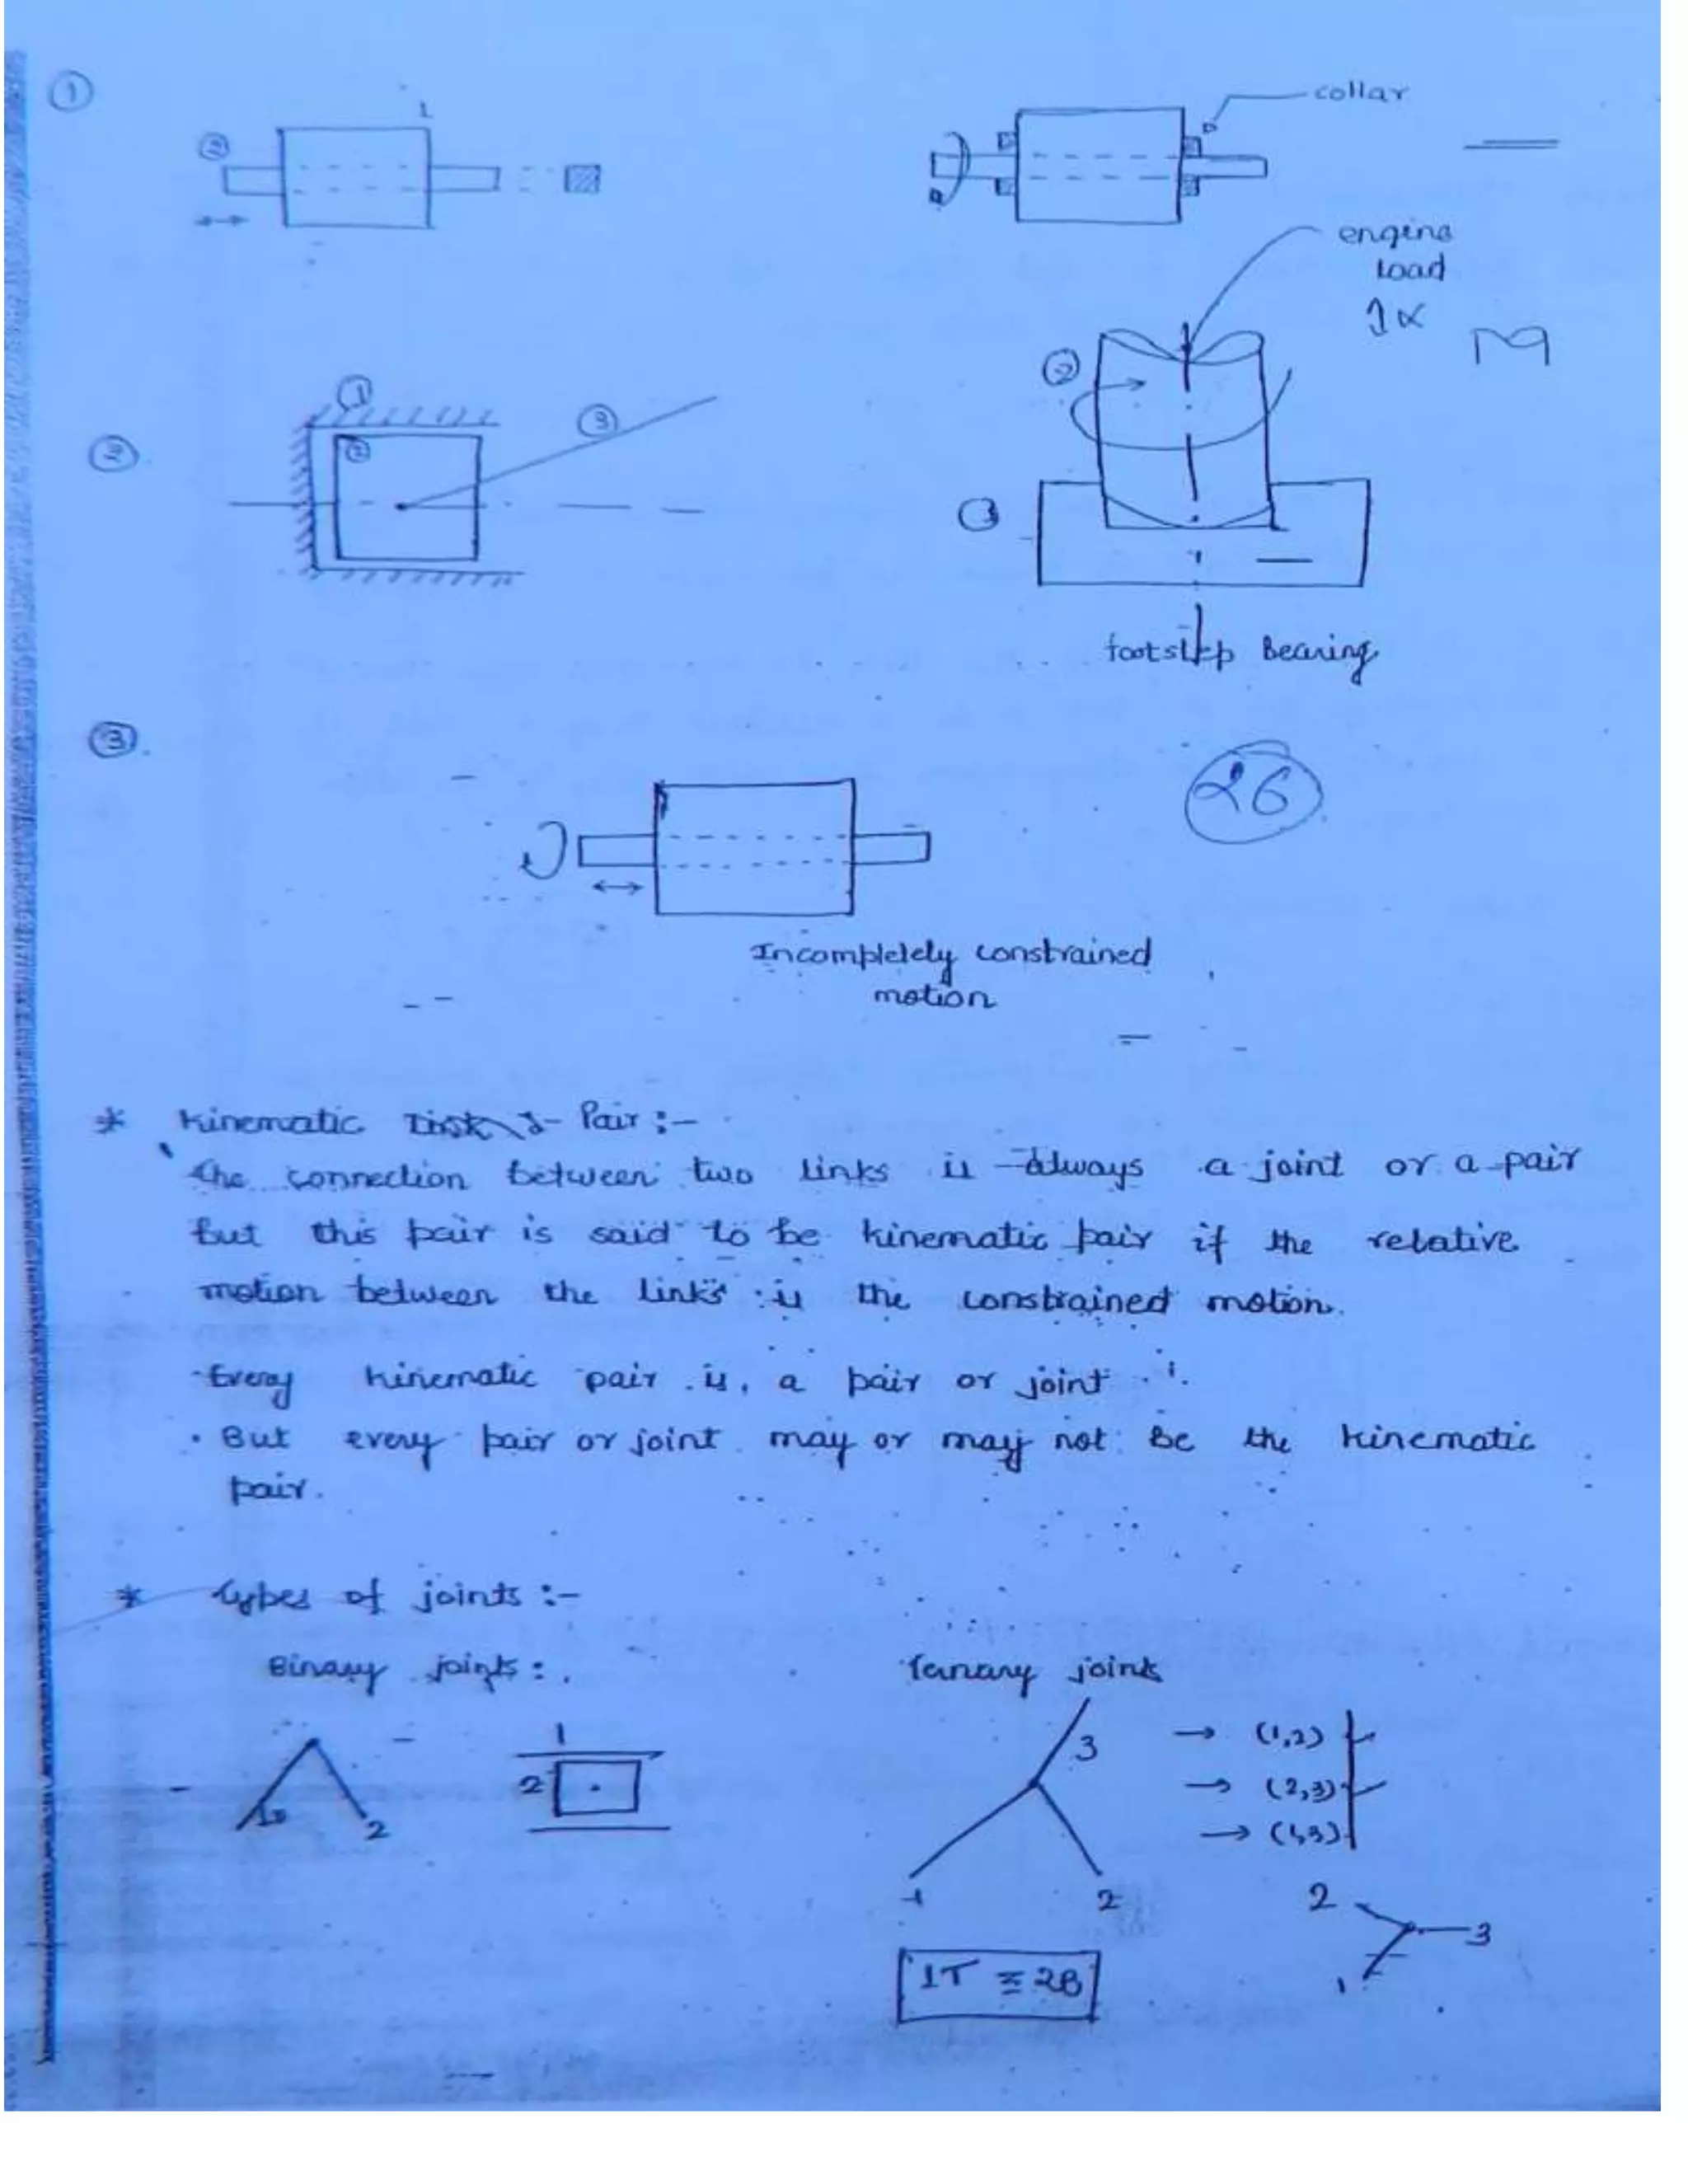 ①
1
②
collar
engine
load
②
①
②
③
②
footstep Bearing
③
26
Incompletely constrained
motion
* Kinematic Pair :-
the connection between two links is always a joint or a pair
but this pair is said to be kinematic pair if the relative
motion between the links is the constrained motion.
Every kinematic pair is, a pair or joint
• But every pair or joint may or may not be the kinematic
pair.
* Types of joints :-
Binary joints :
Ternary joints
1
2
2
1
2
3
→ (1,2)
→ (2,3)
→ (1,3)
1
2
2
3
1
1T ≡ 2B